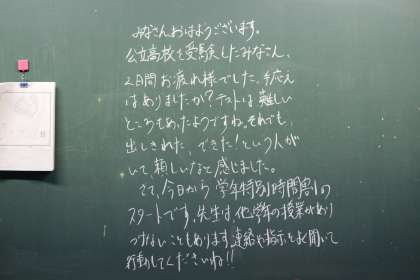 みなさんおはようございます。
公立高校を受験したみなさん、
2日間お疲れ様でした。手応え
はありましたか？テストは難しい
ところもあったようですね。それでも、
出しきれた、できた！という人が
いて、頼しいなと感じました。
さて、今日から学年特別時間割の
スタートです。先生は他学年の授業があり
つけないこともあります。連絡や指示をよく聞いて
行動してくださいね!!